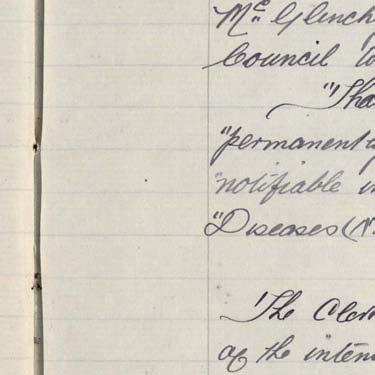 Mc. Glinch
Council
"Tha
"permanent
"notifiable in
"Diseases (N
The Cler
of the inten